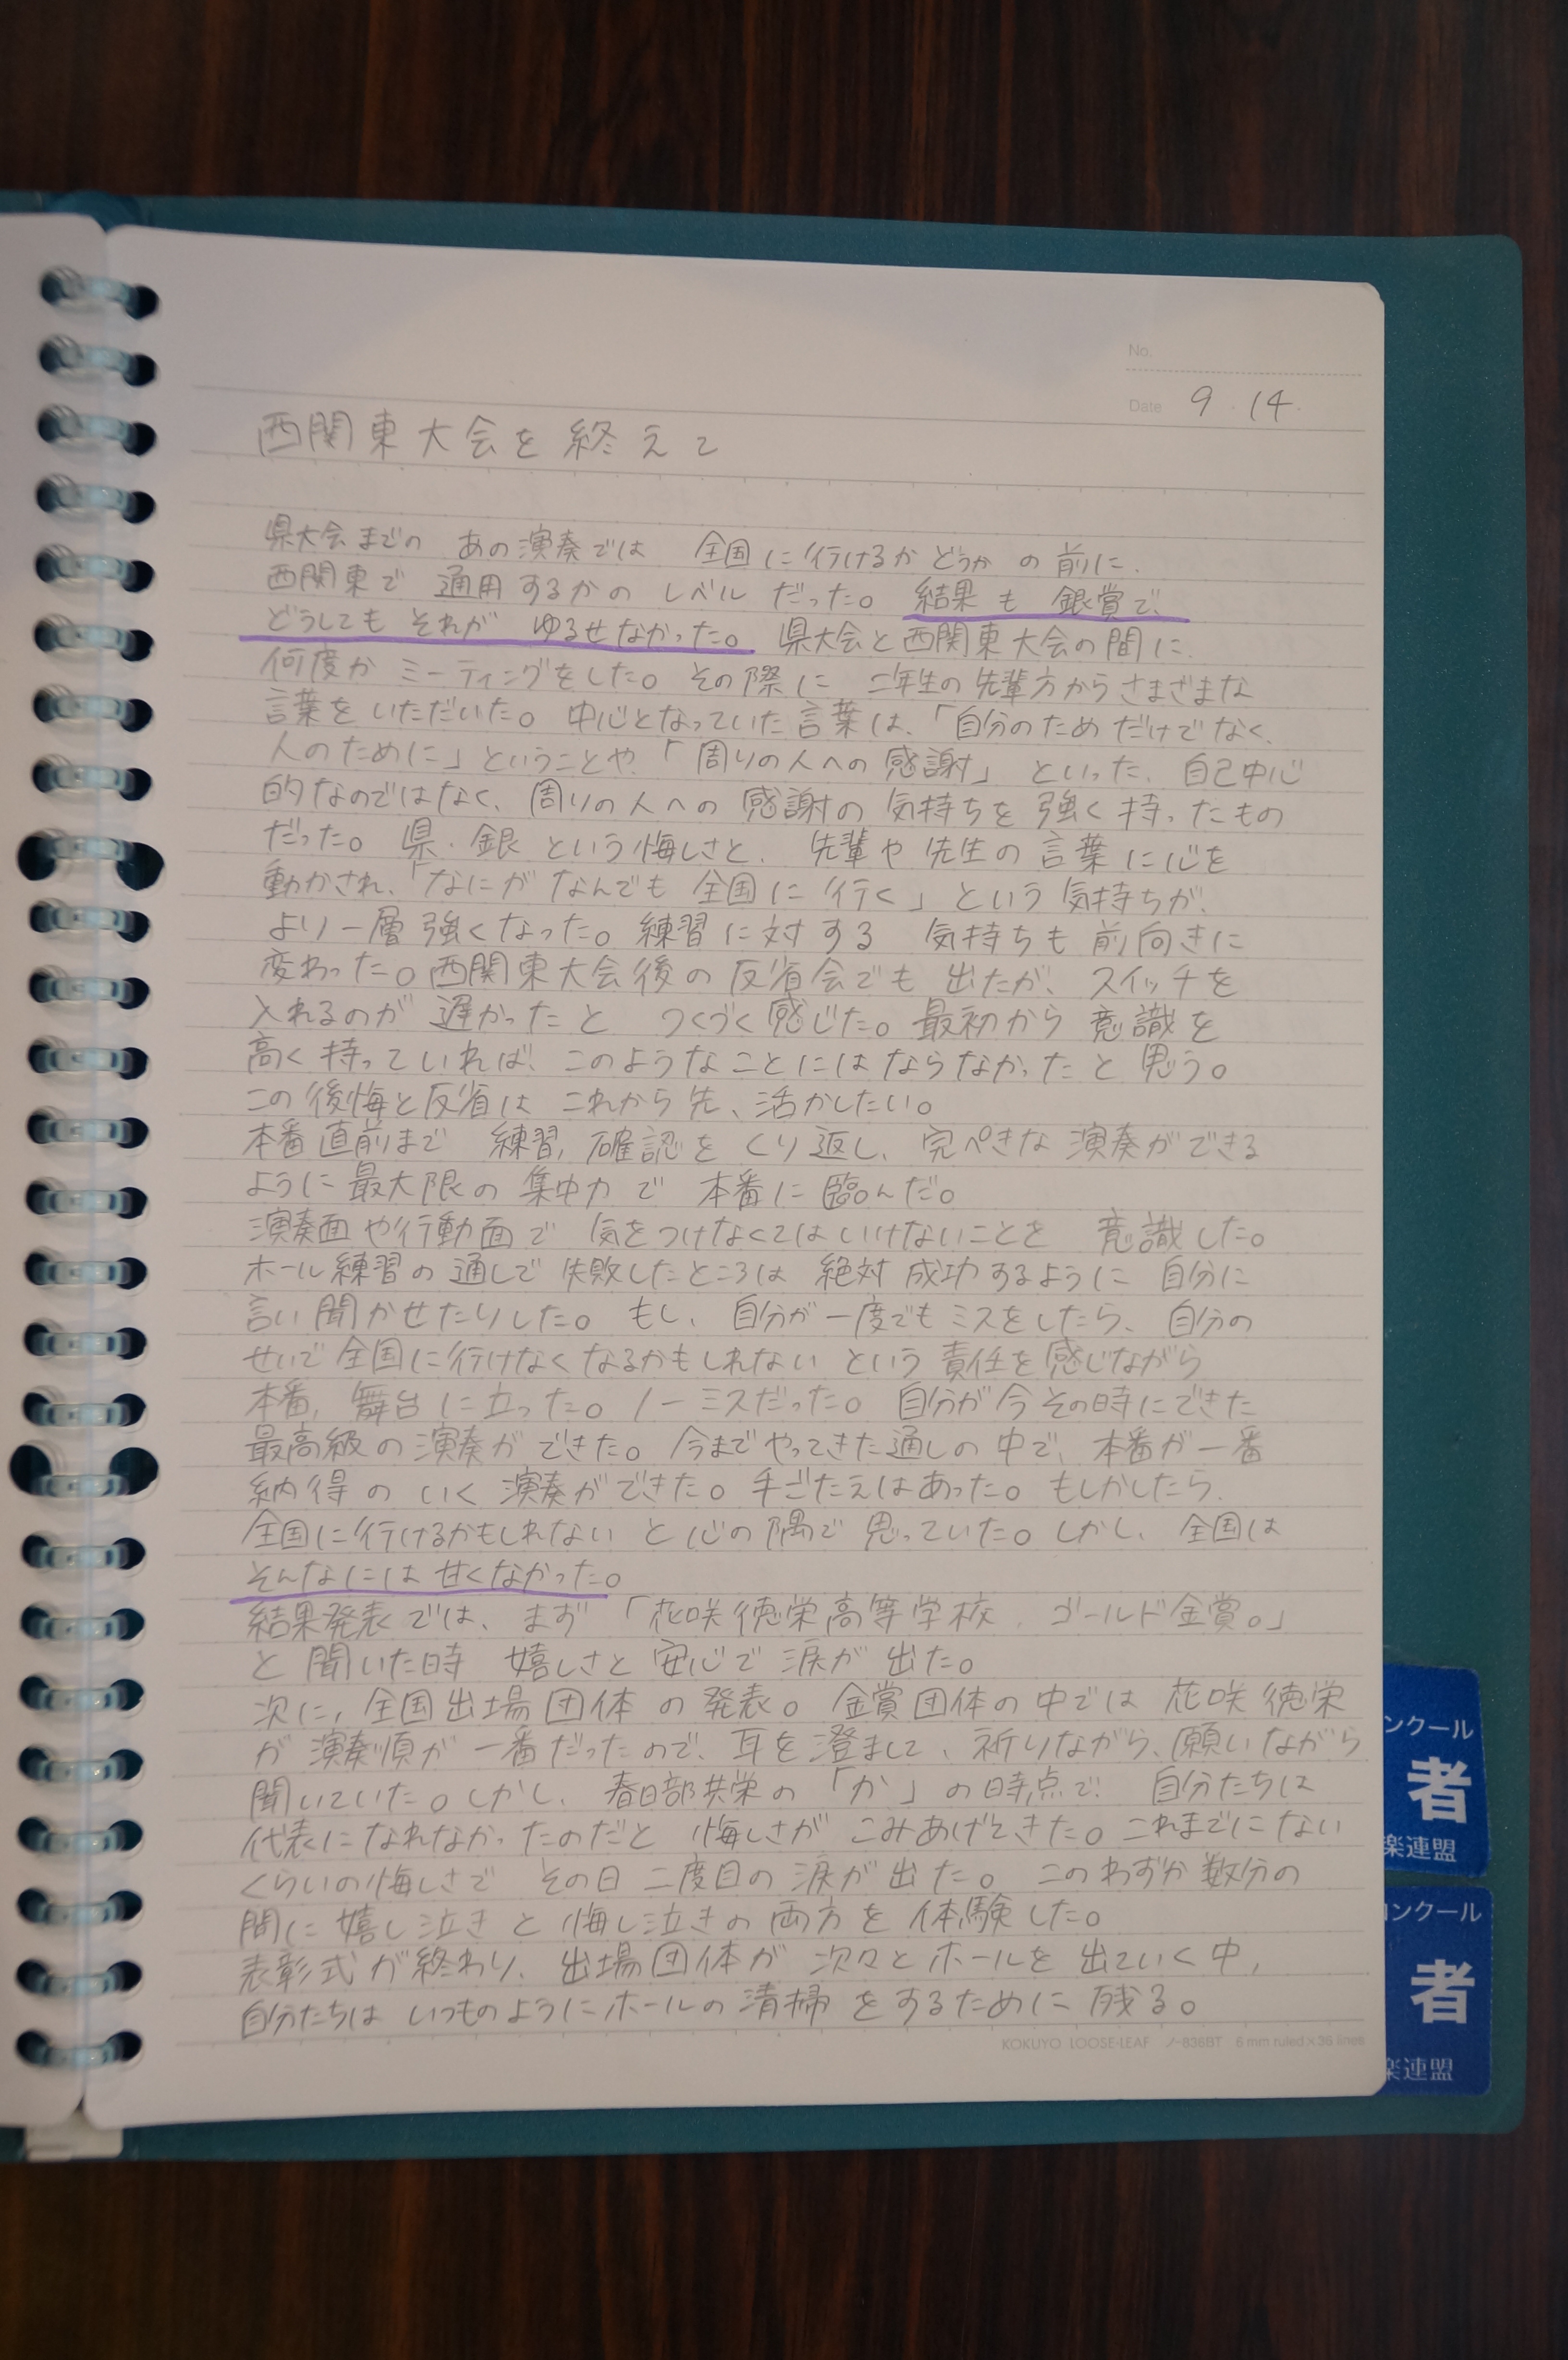 No.
Date 9・14・
西関東大会を終えて
県大会までの あの演奏では 全国に行けるかどうか の前に、
西関東で 通用するかの レベル だった。 結果も 銀賞で、
どうしても それが ゆるせなかった。 県大会と西関東大会の間に、
何度か ミーティングをした。 その際に 二年生の先輩方からさまざまな
言葉を いただいた。 中心となっていた言葉は、「自分のためだけでなく、
人のために」ということや、「周りの人への感謝」といった、自己中心
的なのではなく、周りの人への 感謝の 気持ちを 強く持ったもの
だった。 県・銀 という悔しさと、 先輩や先生の言葉に心を
動かされ、「なにがなんでも 全国に行く」という 気持ちが、
より一層 強くなった。 練習に対する 気持ちも 前向きに
変わった。西関東大会後の反省会でも 出たが、 スイッチを
入れるのが 遅かったと つくづく感じた。最初から 意識を
高く持っていれば、このようなことにはならなかったと思う。
この後悔と反省は これから先、活かしたい。
本番直前まで 練習,確認を くり返し、完ぺきな 演奏ができる
ように 最大限の 集中力で 本番に臨んだ。
演奏面や行動面で 気をつけなくてはいけないことを 意識した。
ホール練習の 通しで 失敗したところは 絶対成功するように 自分に
言い聞かせたりした。 もし、 自分が一度でもミスをしたら、 自分の
せいで全国に行けなくなるかもしれない という責任を感じながら
本番,舞台に立った。ノーミスだった。 自分が今その時にできた
最高級の演奏ができた。 今までやってきた通しの中で、本番が一番
納得の いく 演奏ができた。手ごたえはあった。もしかしたら、
全国に行けるかもしれない と心の隅で思っていた。しかし、全国は
そんなには 甘くなかった。
結果発表では、まず 「花咲徳栄高等学校, ゴールド金賞。」
と聞いた時 嬉しさと安心で 涙が 出た。
次に,全国出場団体 の発表。 金賞団体の中では 花咲徳栄
が 演奏順が 一番だったので、耳を澄まして、祈りながら、願いながら
聞いていた。しかし、 春日部共栄の「か」の時点で、 自分たちは
代表になれなかったのだと 悔しさが こみあげてきた。これまでにない
くらいの悔しさで その日 二度目の 涙が出た。 このわずか数分の
間に嬉し泣きと悔し泣きの両方を体験した。
表彰式が終わり、出場団体が 次々とホールを出ていく中,
自分たちは いつものようにホールの清掃をするために残る。
KOKUYO LOOSE-LEAF ノ-836BT 6mm ruled×36 lines
ンクール
者
楽連盟
ンクール
者
楽連盟